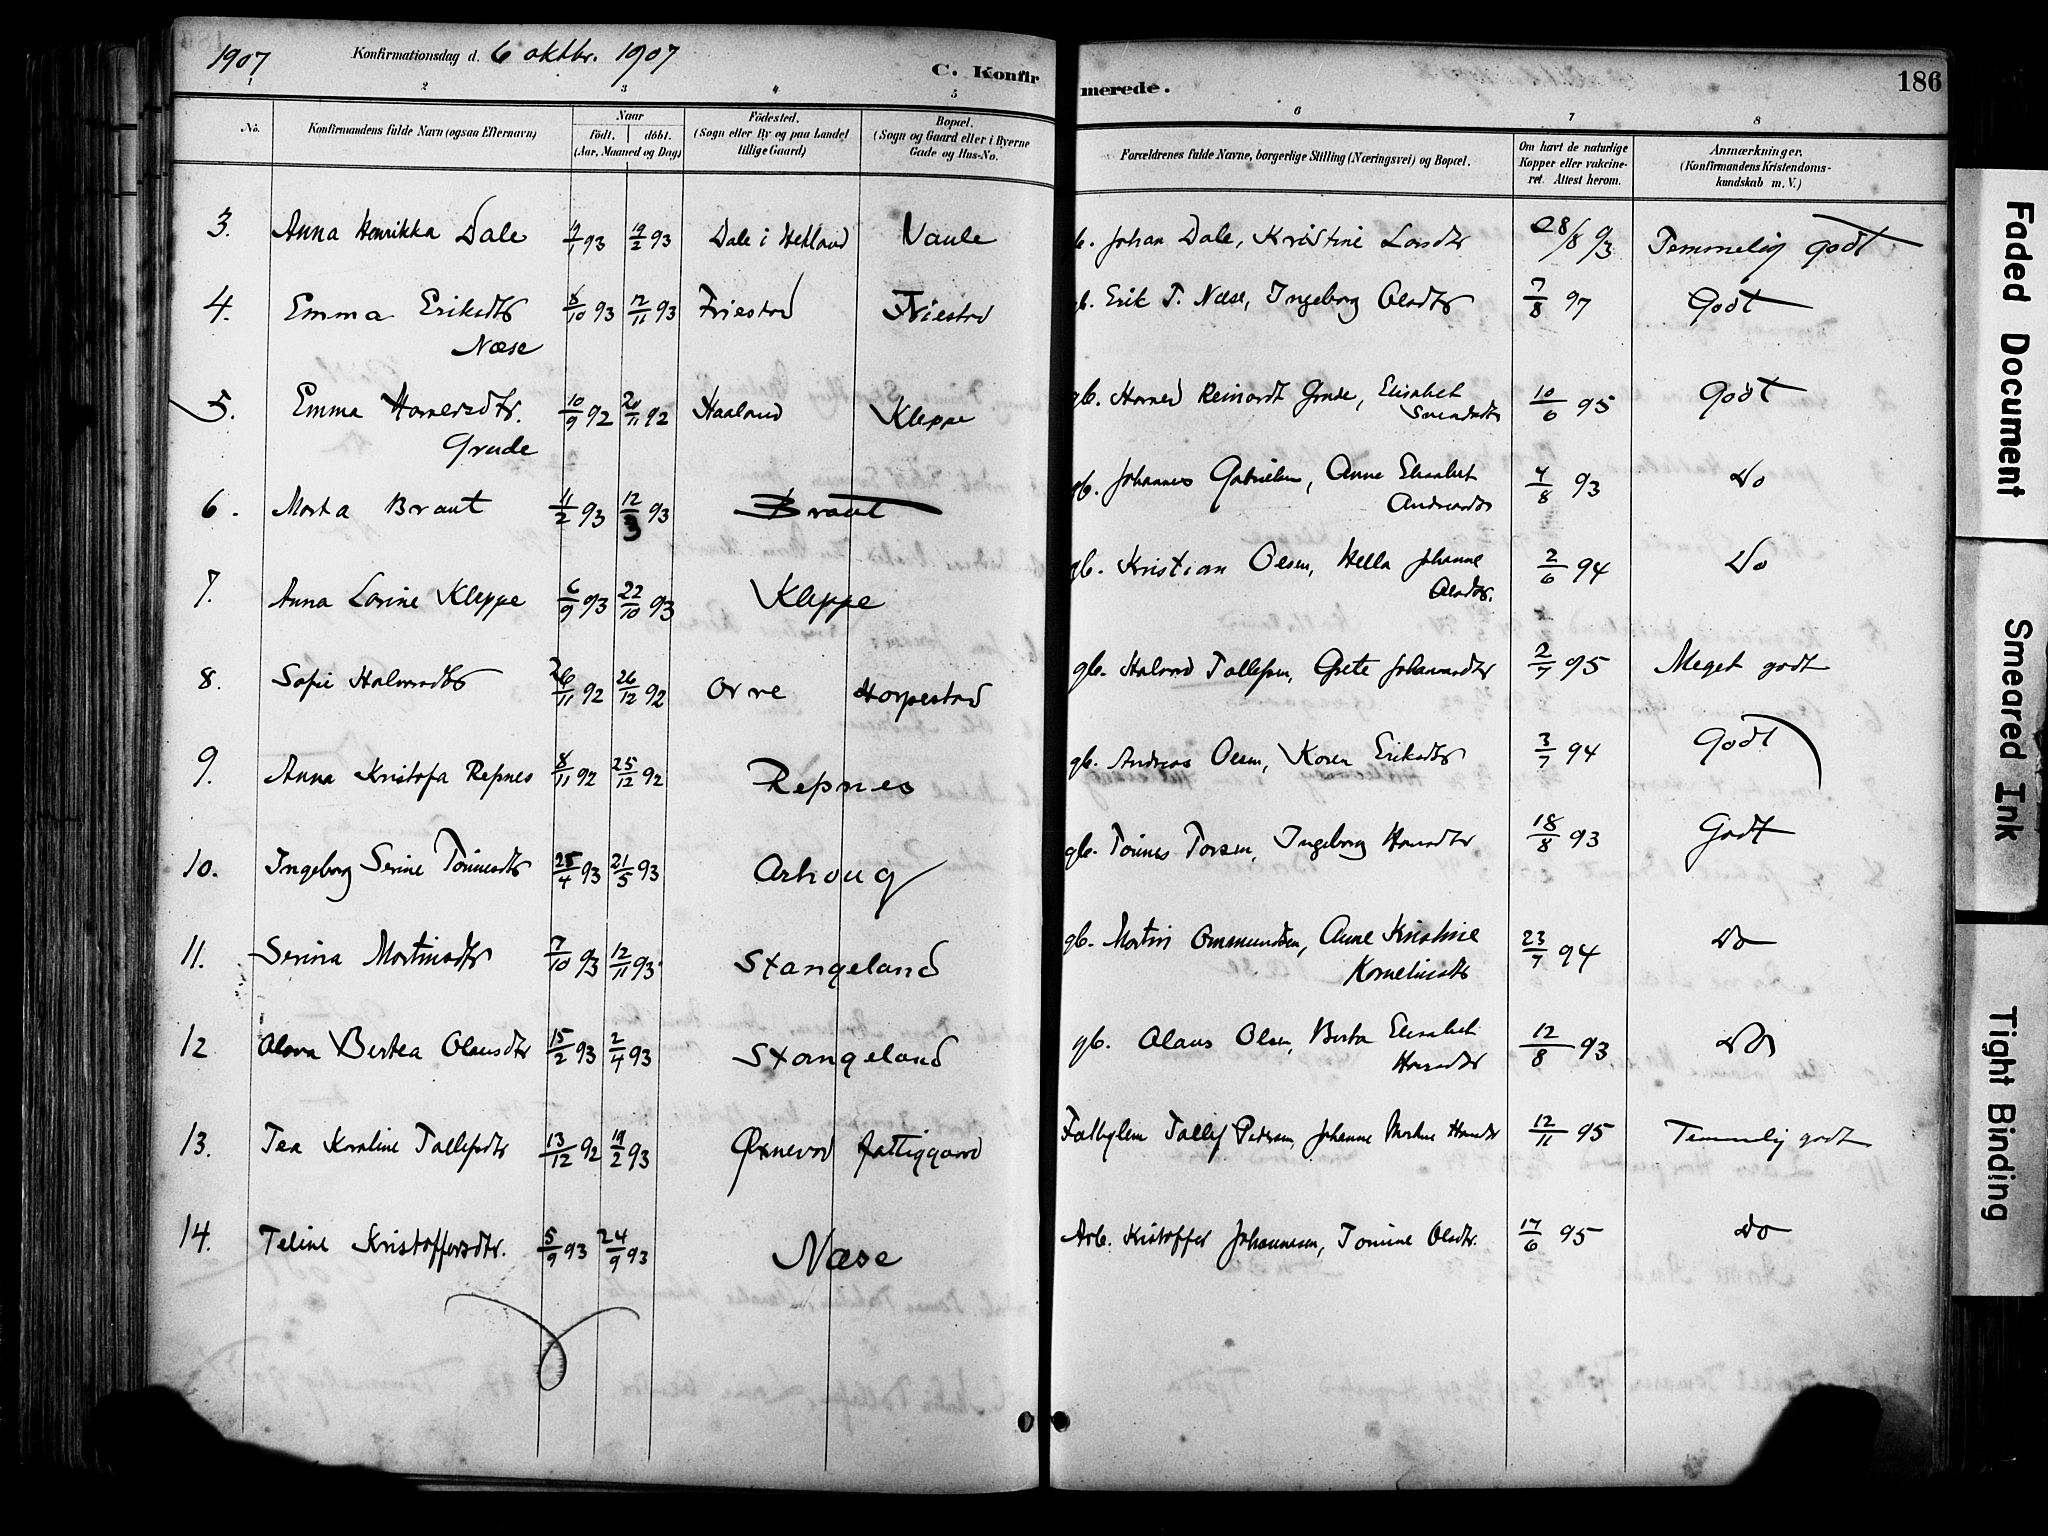 1907 Konfirmationsdag d. 6 oktbr. 1907 C. Konfirmerede. 186
1 2 3 4 5 6 7 8
No. Konfirmandens fulde Navn (ogsaa Efternavn) Naar födt. | döbt. (Aar, Maaned og Dag) Födested. (Sogn eller By og paa Landet tillige Gaard) Bopæl. (Sogn og Gaard eller i Byerne Gade og Hus-No. Forældrenes fulde Navne, borgerlige Stilling (Næringsvei) og Bopæl. Om havt de naturlige Kopper eller vakcineret. Attest herom. Anmærkninger. (Konfirmandens Kristendomskundskab m. V.)
3. Anna Henrikka Dale 93 19/2 93 Dale i Hetland Vaule Johan Dale, Kristine Larsdtr 28/8 93 Temmelig godt
4. Emma Eriksdtr 6/10 93 12/11 93 Friestad Friestad gb. Erik T. Næse, Ingeborg Olsdtr 7/8 97 Godt
Næse
5. Emma 10/9 92 20/11 92 Haaland Kleppe gb. Reinardt Grude, Elisabet 10/6 95 Godt
Grude Svendsdtr
6. Marta Braut 11/2 93 12/3 93 Braut gb. Johannes Gabrielsen, Anne Elisabet 4/8 93 Do
Andreasdtr
7. Anna Lovine Kleppe 6/9 93 22/10 93 Kleppe gb. Kristian Olsen, Hella Johanne 2/6 94 Do
Olsdtr.
8. Sofie Halvorsdtr 26/11 92 26/12 92 Orre Horpestad gb. Halvord Tollefsen, Grete Johannesdtr 2/7 95 Meget godt
9. Anna Kristofa Repnes 8/11 92 25/12 92 Repnes gb. Andreas Olsen, Karen Eriksdtr 3/7 94 Godt
10. Ingeborg Serine Tönnesdtr 25/4 93 21/5 93 Orhoug gb. Tönnes Torsen, Ingeborg Hansdtr 18/8 93 Godt
11. Serina Martinsdtr 7/10 93 12/11 93 Stangeland gb. Martin Ommundsen, Anne Kristine 23/7 94 Do
Korneliusdtr
12 Olava Bertea Olausdtr 15/2 93 2/4 93 Stangeland gb. Olaus Olsen, Berta Elisabet 12/8 93 Do
Hansdtr
13. Tea Karoline Tollefsdtr 13/12 92 19/2 93 Øxnevad fattiggaard Fattiglem Tollef Pedersen, Johanne Hansdtr 12/11 95 Temmelig godt
14. Teline Kristoffersdtr. 5/9 93 24/9 93 Næse Arb. Kristoffer Johannesen, Tomine Olsdtr. 17/6 95 Do
Faded Document
Smeared Ink
Tight Binding